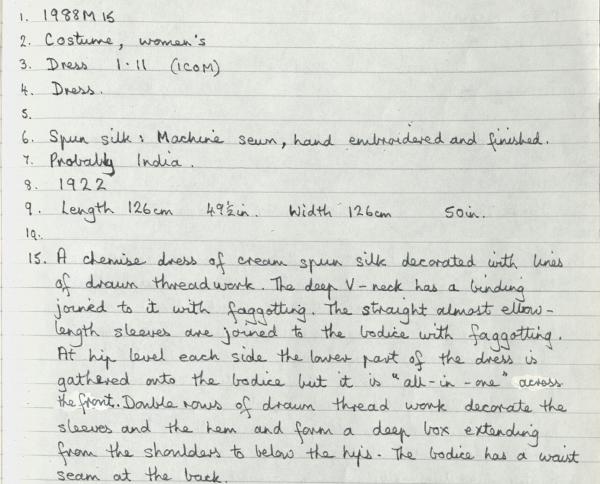 1. 1988M15
2. Costume, women's
3. Dress 1.11 (ICOM)
4. Dress.
5.
6. Spun silk: Machine sewn, hand embroidered and finished.
7. Probably India.
8. 1922
9. Length 126cm 49½in. Width 126cm 50in.
10.
15. A chemise dress of cream spun silk decorated with lines
of drawn threadwork. The deep V-neck has a binding
joined to it with faggotting. The straight almost elbow-
length sleeves are joined to the bodice with faggotting.
At hip level each side the lower part of the dress is
gathered onto the bodice but it is "all-in-one" across
the front. Double rows of drawn thread work decorate the
sleeves and the hem and form a deep box extending
from the shoulders to below the hips. The bodice has a waist
seam at the back.